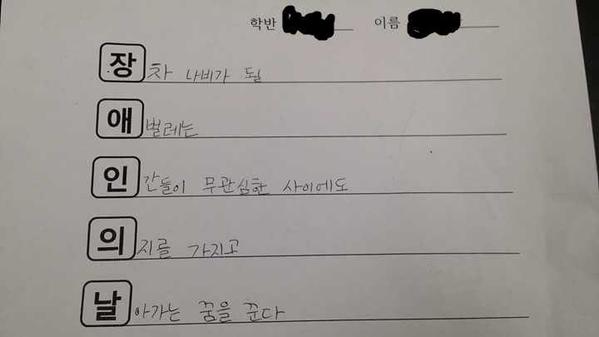 학반 이름
장차 나비가 될
애벌레는
인간들이 무관심한 사이에도
의지를 가지고
날아가는 꿈을 꾼다